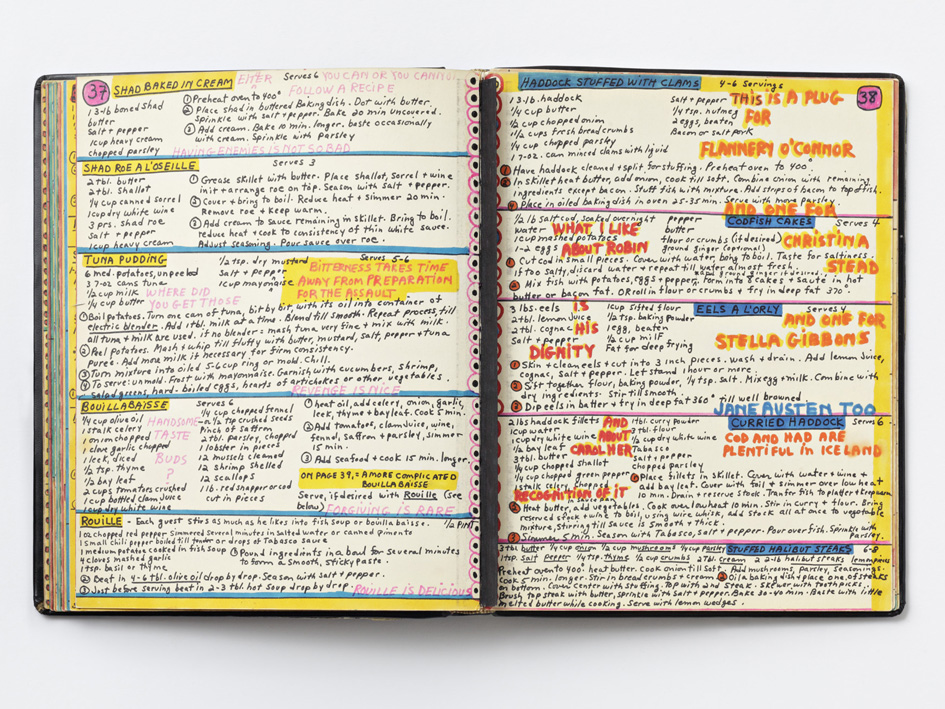 37
SHAD BAKED IN CREAM EITER Serves 6 YOU CAN OR YOU CANNOT
FOLLOW A RECIPE
1 3-lb boned shad
butter
Salt + pepper
1 cup heavy cream
chopped parsley
① Preheat oven to 400°
② Place shad in buttered Baking dish. Dot with butter.
Sprinkle with salt + pepper. Bake 20 min uncovered.
③ Add cream. Bake 10 min. longer, baste occasionally
with cream. Sprinkle with parsley
HAVING ENEMIES IS NOT SO BAD
SHAD ROE A L'OSEILLE Serves 3
2 tbl. butter
2 tbl. Shallot
1/4 cup canned sorrel
1 cup dry white wine
3 prs. shad roe
Salt + pepper
1 cup heavy cream
① Grease skillet with butter. Place shallot, Sorrel + wine
in it + arrange roe on top. Season with Salt + pepper.
② Cover + bring to boil. Reduce heat + simmer 20 min.
Remove roe + keep warm.
③ Add cream to sauce remaining in skillet. Bring to boil.
reduce heat + cook to consistency of thin white sauce.
Adjust seasoning. Pour sauce over roe.
TUNA PUDDING 1/2 tsp. dry mustard Serves 5-6
6 med. potatoes, unpeeled
3 7-oz cans tuna
1/2 cup milk
1/4 cup butter
Salt + pepper
1 cup mayonnaise
WHERE DID
YOU GET THOSE
BITTERNESS TAKES TIME
AWAY FROM PREPARATION
FOR THE ASSAULT
① Boil potatoes. Turn one can of tuna, bit by bit, with its oil into container of
electric blender. Add 1 tbl. milk at a time. Blend till smooth. Repeat process till
all tuna + milk are used. if no blender = mash tuna very fine + mix with milk.
② Peel potatoes. Mash + whip till fluffy with butter, mustard, salt, pepper + tuna
Pureé. Add more milk if necessary for firm consistency.
③ Turn mixture into oiled 5-6 cup ring or mold. Chill.
④ To serve: unmold. Frost with mayonnaise. Garnish with cucumbers, shrimp,
salad greens, hard-boiled eggs, hearts of artichokes or other vegetables.
REVENGE IS NICE
BOUILLABAISSE Serves 6
1/4 cup olive oil
1 stalk celery
1 onion chopped
1 clove garlic
1 leek, diced
1/2 tsp. thyme
1/2 bay leaf
2 cups tomatoes crushed
1 cup bottled clam juice
1 cup dry white wine
HANDSOME
TASTE
BUDS
?
1/4 cup chopped fennel
or 1/2 tsp crushed seeds
Pinch of saffron
2 tbl. parsley, chopped
1 lobster in pieces
12 mussels cleaned
12 shrimp shelled
12 scallops
1 lb. red snapper or cod
cut in pieces
① heat oil, add celery, onion, garlic,
leek, thyme + bay leaf. Cook 5 min.
② Add tomatoes, clam juice, wine,
fennel, saffron + parsley, simmer
15 min.
③ Add Seafood + cook 15 min. longer.
ON PAGE 39, = A MORE COMPLICATED
BOUILLABAISSE
Serve, if desired with Rouille (see
below)
FORGIVING IS RARE
ROUILLE - Each guest stirs as much as he likes into fish soup or bouillabaisse. 1/2 PINT
1 oz chopped red pepper simmered several minutes in salted water or canned pimento
1 small chili pepper boiled till tender or drops of Tabasco sauce
1 medium potato cooked in fish soup
4 cloves mashed garlic
1 tsp. basil or thyme
① Pound ingredients in a bowl for several minutes
to form a smooth, sticky paste
② Beat in 4-6 tbl. olive oil drop by drop. Season with salt + pepper.
③ Just before serving beat in 2-3 tbl. hot soup drop by drop.
ROUILLE IS DELICIOUS
HADDOCK STUFFED WITH CLAMS 4-6 Servings
38
1 3-lb. haddock
1/4 cup butter
1/2 cup chopped onion
1 1/2 cups fresh bread crumbs
1/4 cup chopped parsley
1 7-oz. can minced clams with liquid
Salt + pepper
1/4 tsp. nutmeg
2 eggs, beaten
Bacon or salt pork
THIS IS A PLUG
FOR
FLANNERY O'CONNOR
① Have haddock cleaned + split for stuffing. Preheat oven to 400°
② In skillet heat butter, add onion, cook till soft. Combine onion with remaining
ingredients except bacon. Stuff fish with mixture. Add strips of bacon to top of fish.
Place in oiled baking dish in oven 25-35 min. Serve with more parsley.
AND ONE FOR
CODFISH CAKES Serves 4
CHRISTINA
STEAD
1/2 lb. salt cod, soaked overnight
water
1 cup mashed potatoes
1-2 eggs
pepper
butter
flour or crumbs (if desired)
ground ginger (optional)
WHAT I LIKE
ABOUT ROBIN
① Cut cod in small pieces. Cover with water, bring to boil. Taste for saltiness.
if too salty, discard water + repeat till water almost fresh.
② Mix fish with potatoes, eggs + pepper, + ground ginger if desired. Form into 8 cakes + sauté in hot
butter or bacon fat. OR roll in flour or crumbs + fry in deep fat 370°.
EELS A L'ORLY Serves 4
3 lbs. eels
2 tbl. lemon juice
2 tbl. cognac
Salt + pepper
1 cup sifted flour
1/2 tsp. baking powder
1 egg, beaten
1/2 cup milk
Fat for deep frying
IS
HIS
DIGNITY
AND ONE FOR
STELLA GIBBONS
① Skin + clean eels + cut into 3 inch pieces. Wash + drain. Add lemon juice,
cognac, Salt + pepper. Let stand 1 hour or more.
② Sift together flour, baking powder, 1/4 tsp. salt. Mix egg + milk. Combine with
dry ingredients. Stir till smooth
③ Dip eels in batter + fry in deep fat 360° till well browned
JANE AUSTEN TOO
CURRIED HADDOCK Serves 6
COD AND HAD ARE
PLENTIFUL IN ICELAND
2 lbs haddock fillets
1 cup water
1 cup dry white wine
1/2 bay leaf
3 tbl. butter
1/4 cup chopped shallot
1/4 cup chopped green pepper
1 stalk celery, chopped
1 tbl. curry powder
2 tbl. flour
1/2 cup dry white wine
Tabasco
Salt + pepper
chopped parsley
AND
ABOUT
CAROL HER
RECOGNITION OF IT
① Place fillets in skillet. Cover with water + wine +
add bay leaf. Cover with foil + simmer over low heat
10 min. Drain + reserve stock. Transfer fish to platter + keep warm
② Heat butter, add vegetables. Cook over low heat 10 min. Stir in curry + flour. Bring
reserved stock + wine to boil, using wire whisk, add stock all at once to vegetable
mixture, stirring till sauce is smooth + thick.
③ Simmer 5 min. Season with Tabasco, Salt + pepper. Pour over fish. Sprinkle with
Parsley.
STUFFED HALIBUT STEAKS 6-8
3 tbl butter 1/4 cup onion 1/2 cup mushrooms 1/4 cup parsley
1 tsp. salt pepper 1/4 tsp. thyme 1/2 cup crumbs 2 tbl. cream 2 2-lb halibut steaks lemon juice
Preheat oven to 400°. heat butter. Cook onion till soft. Add mushrooms, parsley, seasonings.
Cook 5 min. longer. Stir in bread crumbs + cream. ② Oil a baking dish + place one of steaks
on bottom. Cover steak with stuffing. Top with 2nd steak. Skewer with toothpicks.
Brush top steak with butter, sprinkle with salt + pepper. Bake 30-40 min. Baste with little
melted butter while cooking. Serve with lemon wedges.